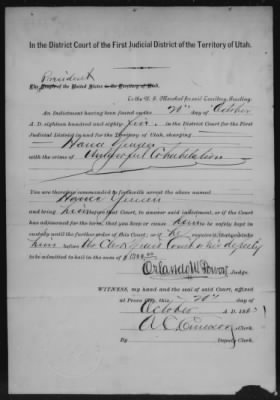 In the District Court of the First Judicial District of the Territory of Utah.
President
The People of the United States in the Territory of Utah,
To the U. S. Marshal for said Territory, Greeting:
An Indictment having been found on the 20th day of October
A. D. eighteen hundred and eighty in the District Court for the First
Judicial District in and for the Territory of Utah, charging
Hans Jensen
with the crime of Unlawful Cohabitation
You are therefore commanded to forthwith arrest the above named
Hans Jensen
and bring him before that Court, to answer said indictment, or if the Court
has adjourned for the term, that you keep him to be safely kept in
custody until the further order of this Court, or if he requires it, that you take
him before the Clerk of said Court or his deputy
to be admitted to bail in the sum of $1500.00
Orlando W. Powers Judge.
WITNESS, my hand and the seal of said Court, affixed
at Provo City, this 20th day of
October A. D. 188
Clerk.
By Deputy Clerk.